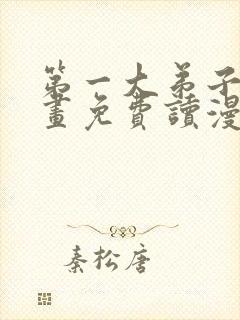 第一大弟子
畫免費讀漫
秦松唐